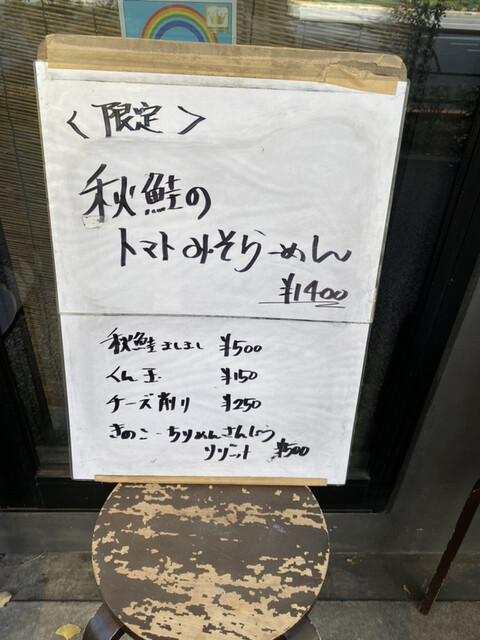 〈限定〉
秋鮭の
トマトみそらーめん
¥1400
秋鮭ましまし ¥500
くん玉 ¥150
チーズ削り ¥250
きのこ・ちりめんさんしょう
リゾット ¥500